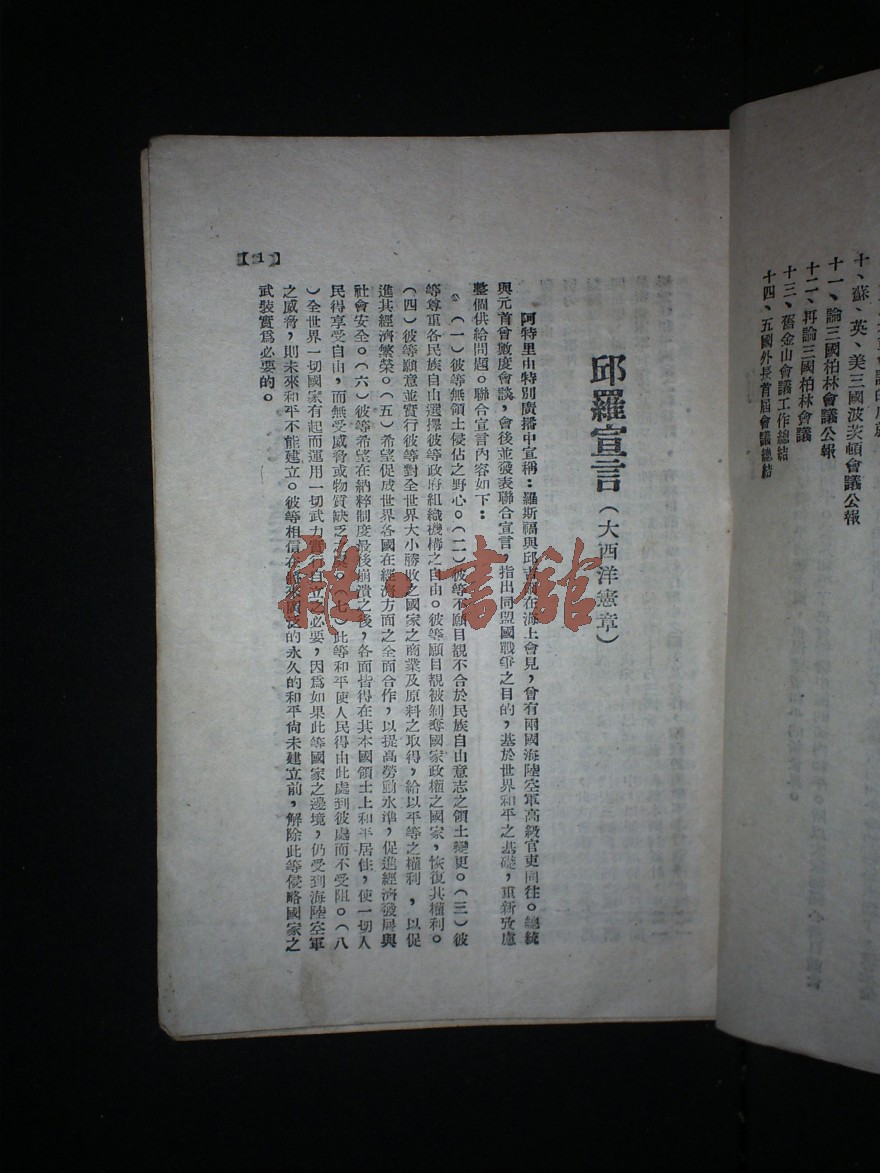 十、蘇、英、美三國波茨頓會議公報
十一、論三國柏林會議公報
十二、再論三國柏林會議
十三、舊金山會議工作總結
十四、五國外長首屆會議總結
邱羅宣言（大西洋憲章）
阿特里由特別廣播中宣稱：羅斯福與邱吉爾在海上會見，曾有兩國海陸空軍高級官吏同往。總統
與元首曾數度會談，會後並發表聯合宣言，指出同盟國戰爭之目的，基於世界和平之基礎，重新攷慮
整個供給問題。聯合宣言內容如下：
（一）彼等無領土侵佔之野心。（二）彼等不願目覩不合於民族自由意志之領土變更。（三）彼
等尊重各民族自由選擇彼等政府組織機構之自由。彼等願目覩被剝奪國家政權之國家，恢復其權利。
（四）彼等願意並實行彼等對全世界大小勝敗之國家之商業及原料之取得，給以平等之權利，以促
進其經濟繁榮。（五）希望促成世界各國在經濟方面之全面合作，以提高勞動水準，促進經濟發展與
社會安全。（六）彼等希望在納粹制度最後崩潰之後，各面皆得在其本國領土上和平居住，使一切人
民得享受自由，而無受威脅或物質缺乏之。（七）此等和平使人民得由此處到彼處而不受阻。（八
）全世界一切國家有起而運用一切武力實行自立之必要，因爲如果此等國家之邊境，仍受到海陸空軍
之威脅，則未來和平不能建立。彼等相信在將來的永久的和平尙未建立前，解除此等侵略國家之
武裝實爲必要的。
【1】
雅·書館